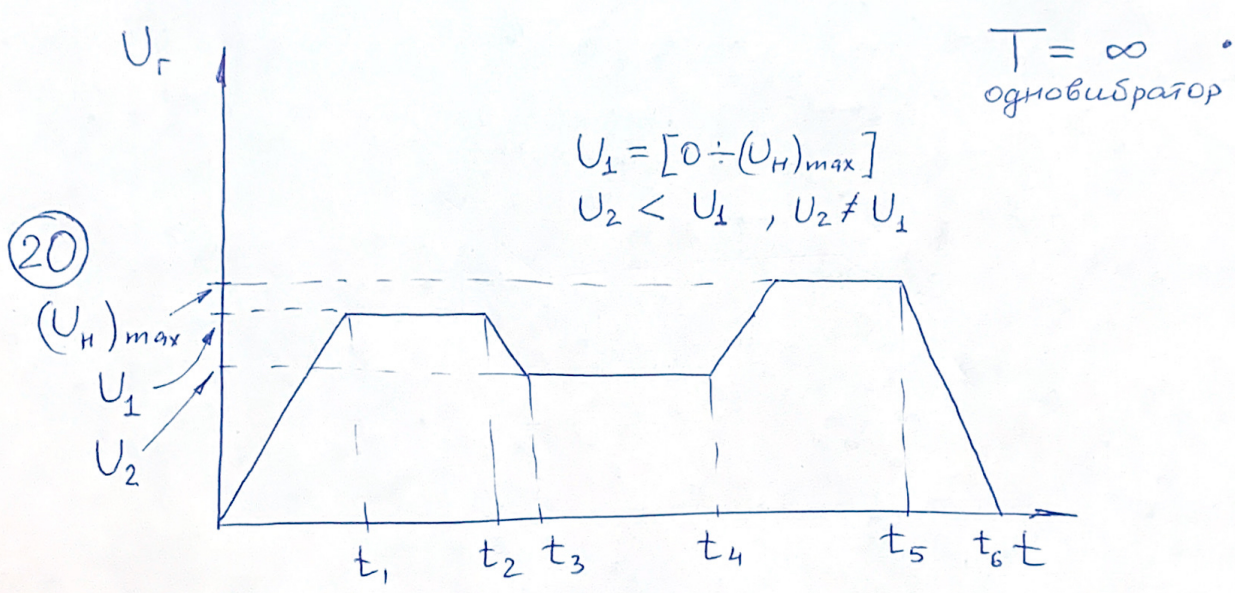 Uг
T = ∞
одновибратор
U₁ = [0 ÷ (Uн)max]
U₂ < U₁ , U₂ ≠ U₁
20
(Uн)max
U₁
U₂
t₁ t₂ t₃ t₄ t₅ t₆ t